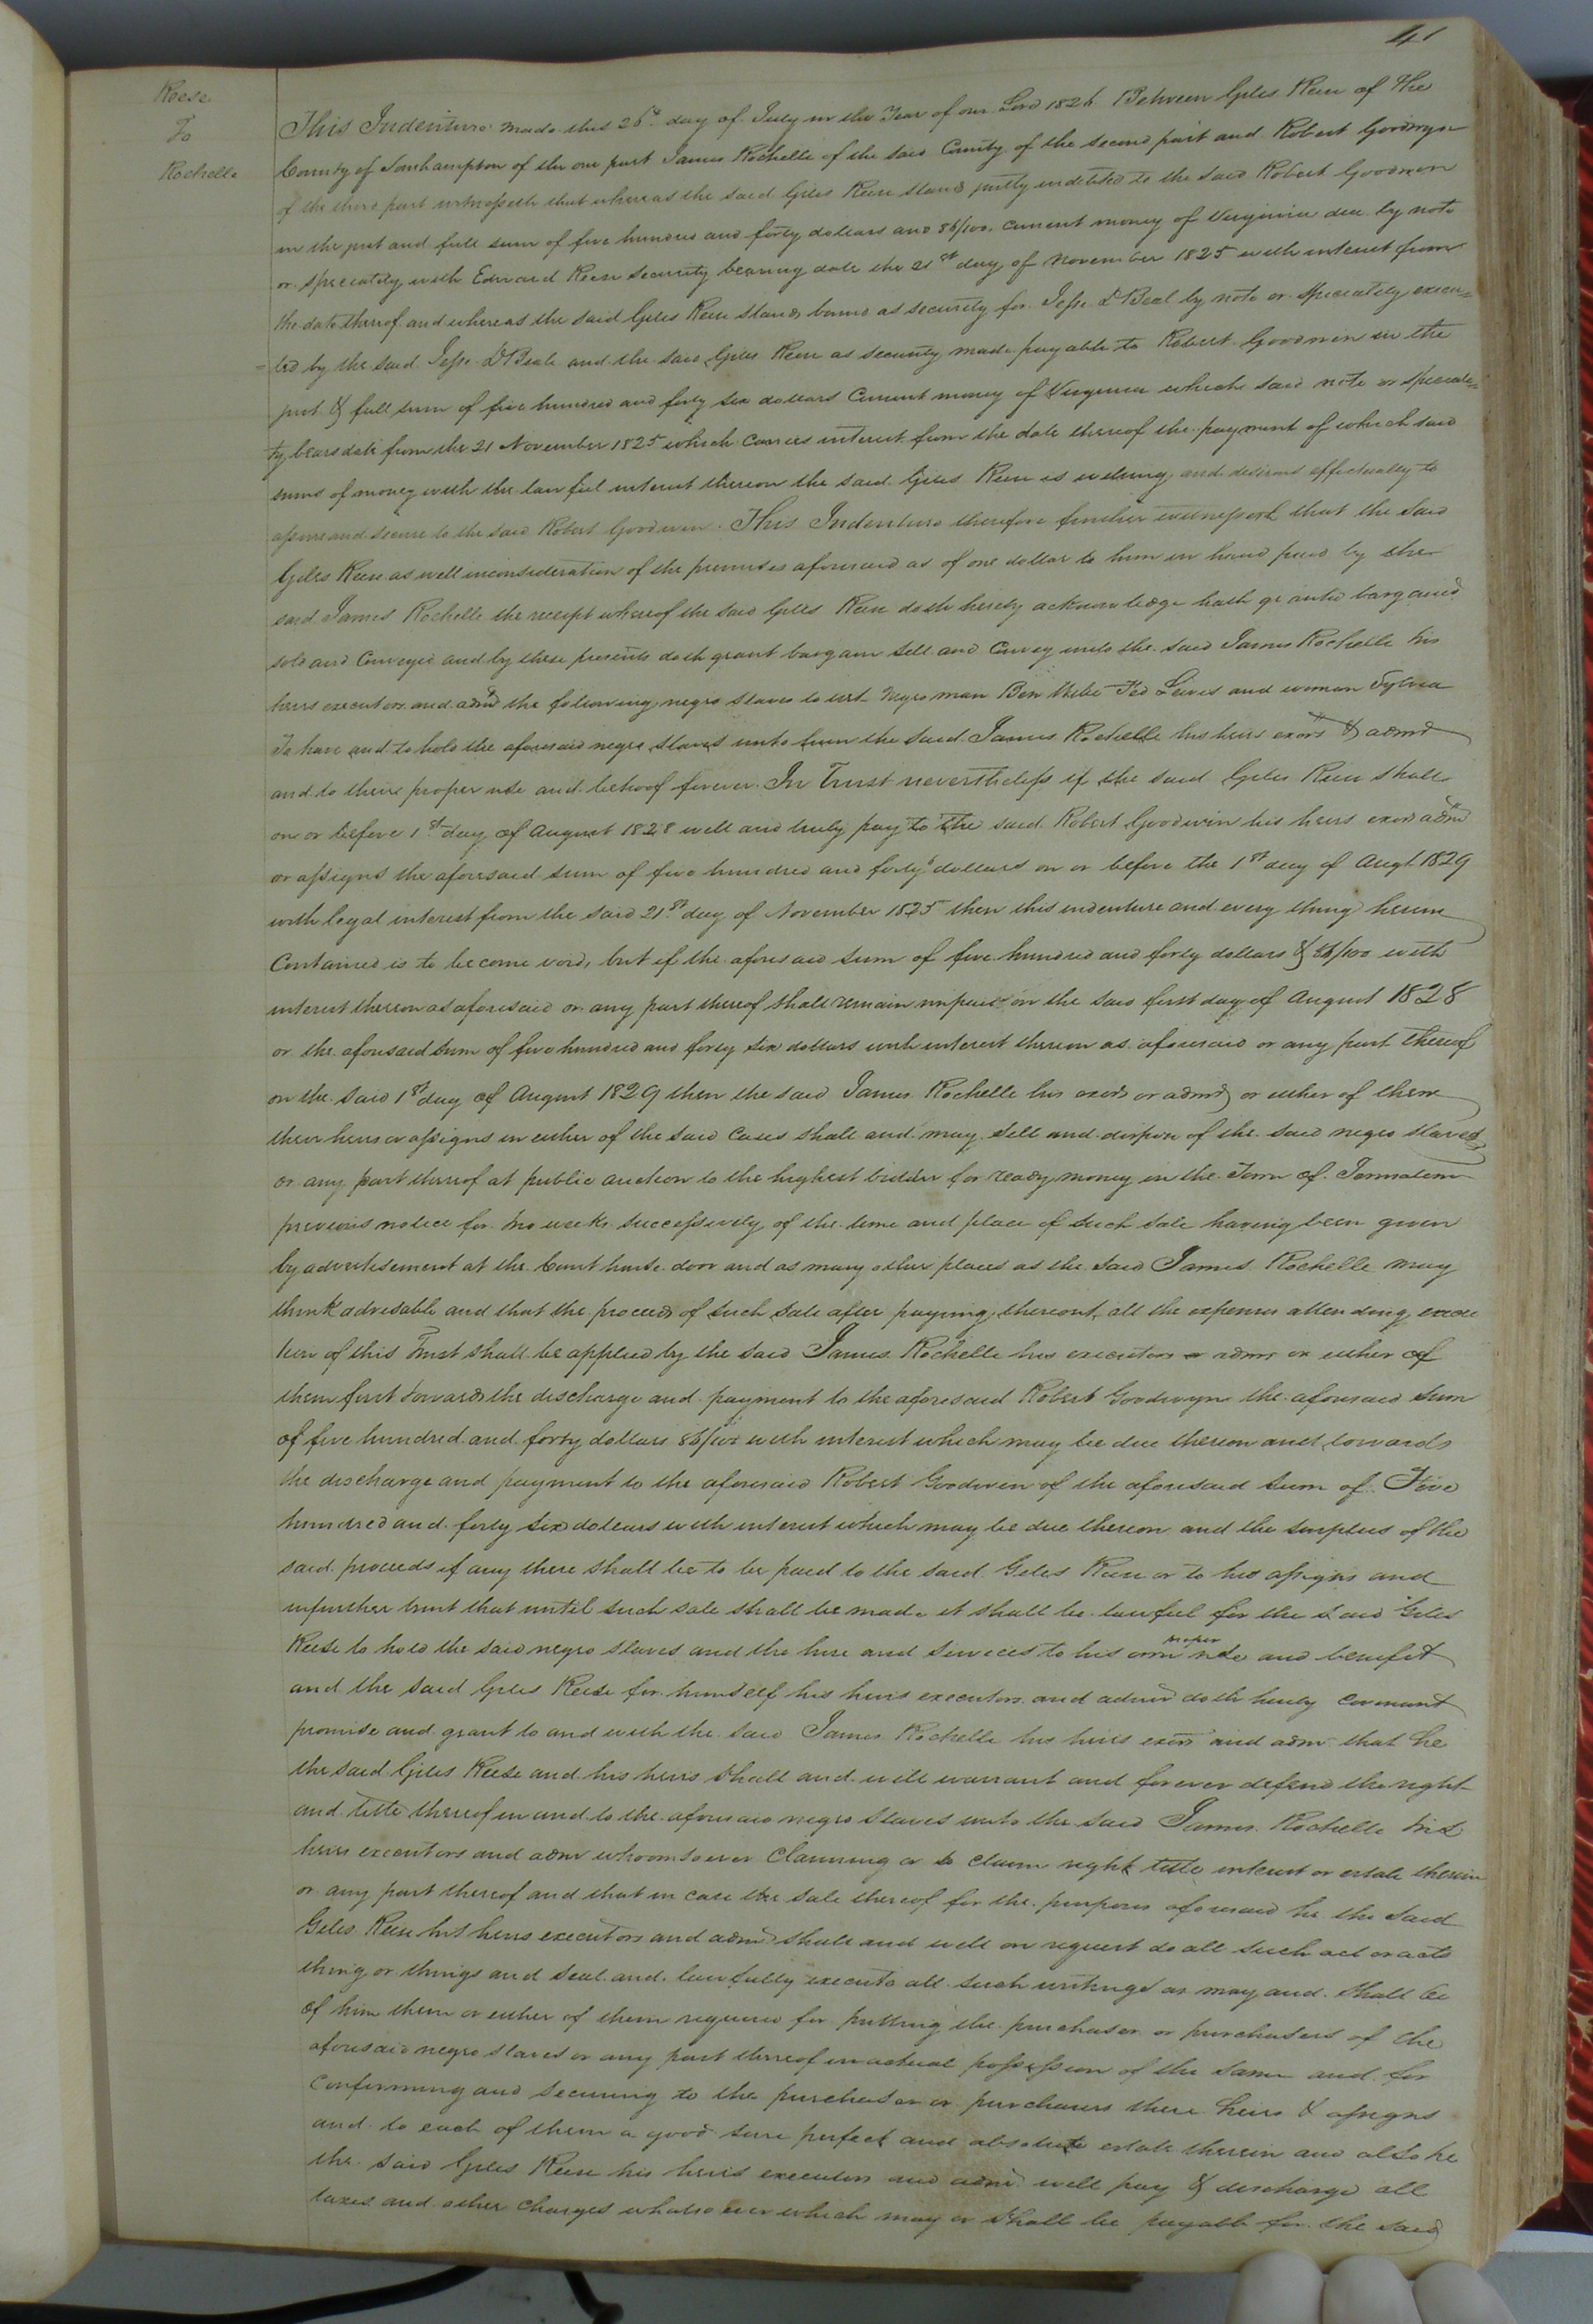 41
Reese
To
Rochelle
This Indenture made this 26th day of July in the Year of our Lord 1826 Between Giles Reese of the
County of Southampton of the one part James Rochelle of the said County of the second part and Robert Goodwyn
of the third part witnesseth that whereas the said Giles Reese stands justly indebted to the said Robert Goodwin
in the just and full sum of five hundred and forty dollars and 86/100 current money of Virginia due by note
or specialty with Edward Reese security bearing date the 21st day of November 1825 with interest from
the date thereof and whereas the said Giles Reese stands bound as security for Jesse D Beal by note or specialty execu=
=ted by the said Jesse D Beale and the said Giles Reese as security made payable to Robert Goodwin in the
just & full sum of five hundred and forty six dollars Current money of Virginia which said note or special=
ty bears date from the 21 November 1825 which carries interest from the date thereof the payment of which said
sums of money with the lawful interest thereon the said Giles Reese is willing and desirous effectually to
assure and secure to the said Robert Goodwin. This Indenture therefore further witnesseth that the said
Giles Reese as well in consideration of the premises aforesaid as of one dollar to him in hand paid by the
said James Rochelle the receipt whereof the said Giles Reese doth hereby acknowledge hath granted bargained
sold and Conveyed and by these presents doth grant bargain sell and Convey unto the said James Rochelle his
heirs executors and admrs the following negro slaves to wit Negro man Ben Ted Lewis and woman Sylvia
To have and to hold the aforesaid negro slaves unto him the said James Rochelle his heirs exors & admrs
and to their proper use and behoof forever. In Trust nevertheless if the said Giles Reese shall
on or before 1st day of August 1828 well and truly pay to the said Robert Goodwin his heirs exors admrs
or assigns the aforesaid sum of five hundred and forty 6 dollars on or before the 1st day of Augt 1829
with legal interest from the said 21st day of November 1825 then this indenture and every thing herein
Contained is to become void, but if the aforesaid sum of five hundred and forty dollars & 86/100 with
interest thereon as aforesaid or any part thereof shall remain unpaid on the said first day of August 1828
or the aforesaid sum of five hundred and forty six dollars with interest thereon as aforesaid or any part thereof
on the said 1st day of August 1829 then the said James Rochelle his exors or admrs or either of them
their heirs or assigns in either of the said Cases shall and may sell and dispose of the said negro slaves
or any part thereof at public auction to the highest bidder for ready money in the Town of Jerusalem
previous notice for two weeks successively of the time and place of such sale having been given
by advertisement at the Court house door and as many other places as the said James Rochelle may
think advisable and that the proceeds of such sale after paying thereout all the expenses attending execu
tion of this Trust shall be applied by the said James Rochelle his executors or admrs or either of
them first towards the discharge and payment to the aforesaid Robert Goodwyn the aforesaid sum
of five hundred and forty dollars 86/100 with interest which may be due thereon and towards
the discharge and payment to the aforesaid Robert Goodwin of the aforesaid sum of Five
hundred and forty six dollars with interest which may be due thereon and the surplus of the
said proceeds if any there shall be to be paid to the said Giles Reese or to his assigns and
in further trust that until such sale shall be made it shall be lawful for the said Giles
Reese to hold the said negro slaves and the hire and services to his own proper use and benefit
and the said Giles Reese for himself his heirs executors and admrs doth hereby covenant
promise and grant to and with the said James Rochelle his heirs exors and admrs that he
the said Giles Reese and his heirs shall and will warrant and forever defend the right
and title thereof in and to the aforesaid negro slaves unto the said James Rochelle his
heirs executors and admr whoomsoever Claiming or to claim right title interest or estate therein
or any part thereof and that in case the sale thereof for the purposes aforesaid he the said
Giles Reese his heirs executors and admrs shall and will on request do all such act or acts
thing or things and seal and lawfully execute all such writings as may and shall be
of him them or either of them required for putting the purchaser or purchasers of the
aforesaid negro slaves or any part thereof in actual possession of the same and for
Confirming and securing to the purchaser or purchasers there heirs & assigns
and to each of them a good sure perfect and absolute estate therein and also he
the said Giles Reese his heirs executors and admrs will pay & discharge all
taxes and other Charges whatsoever which may or shall be payable for the said